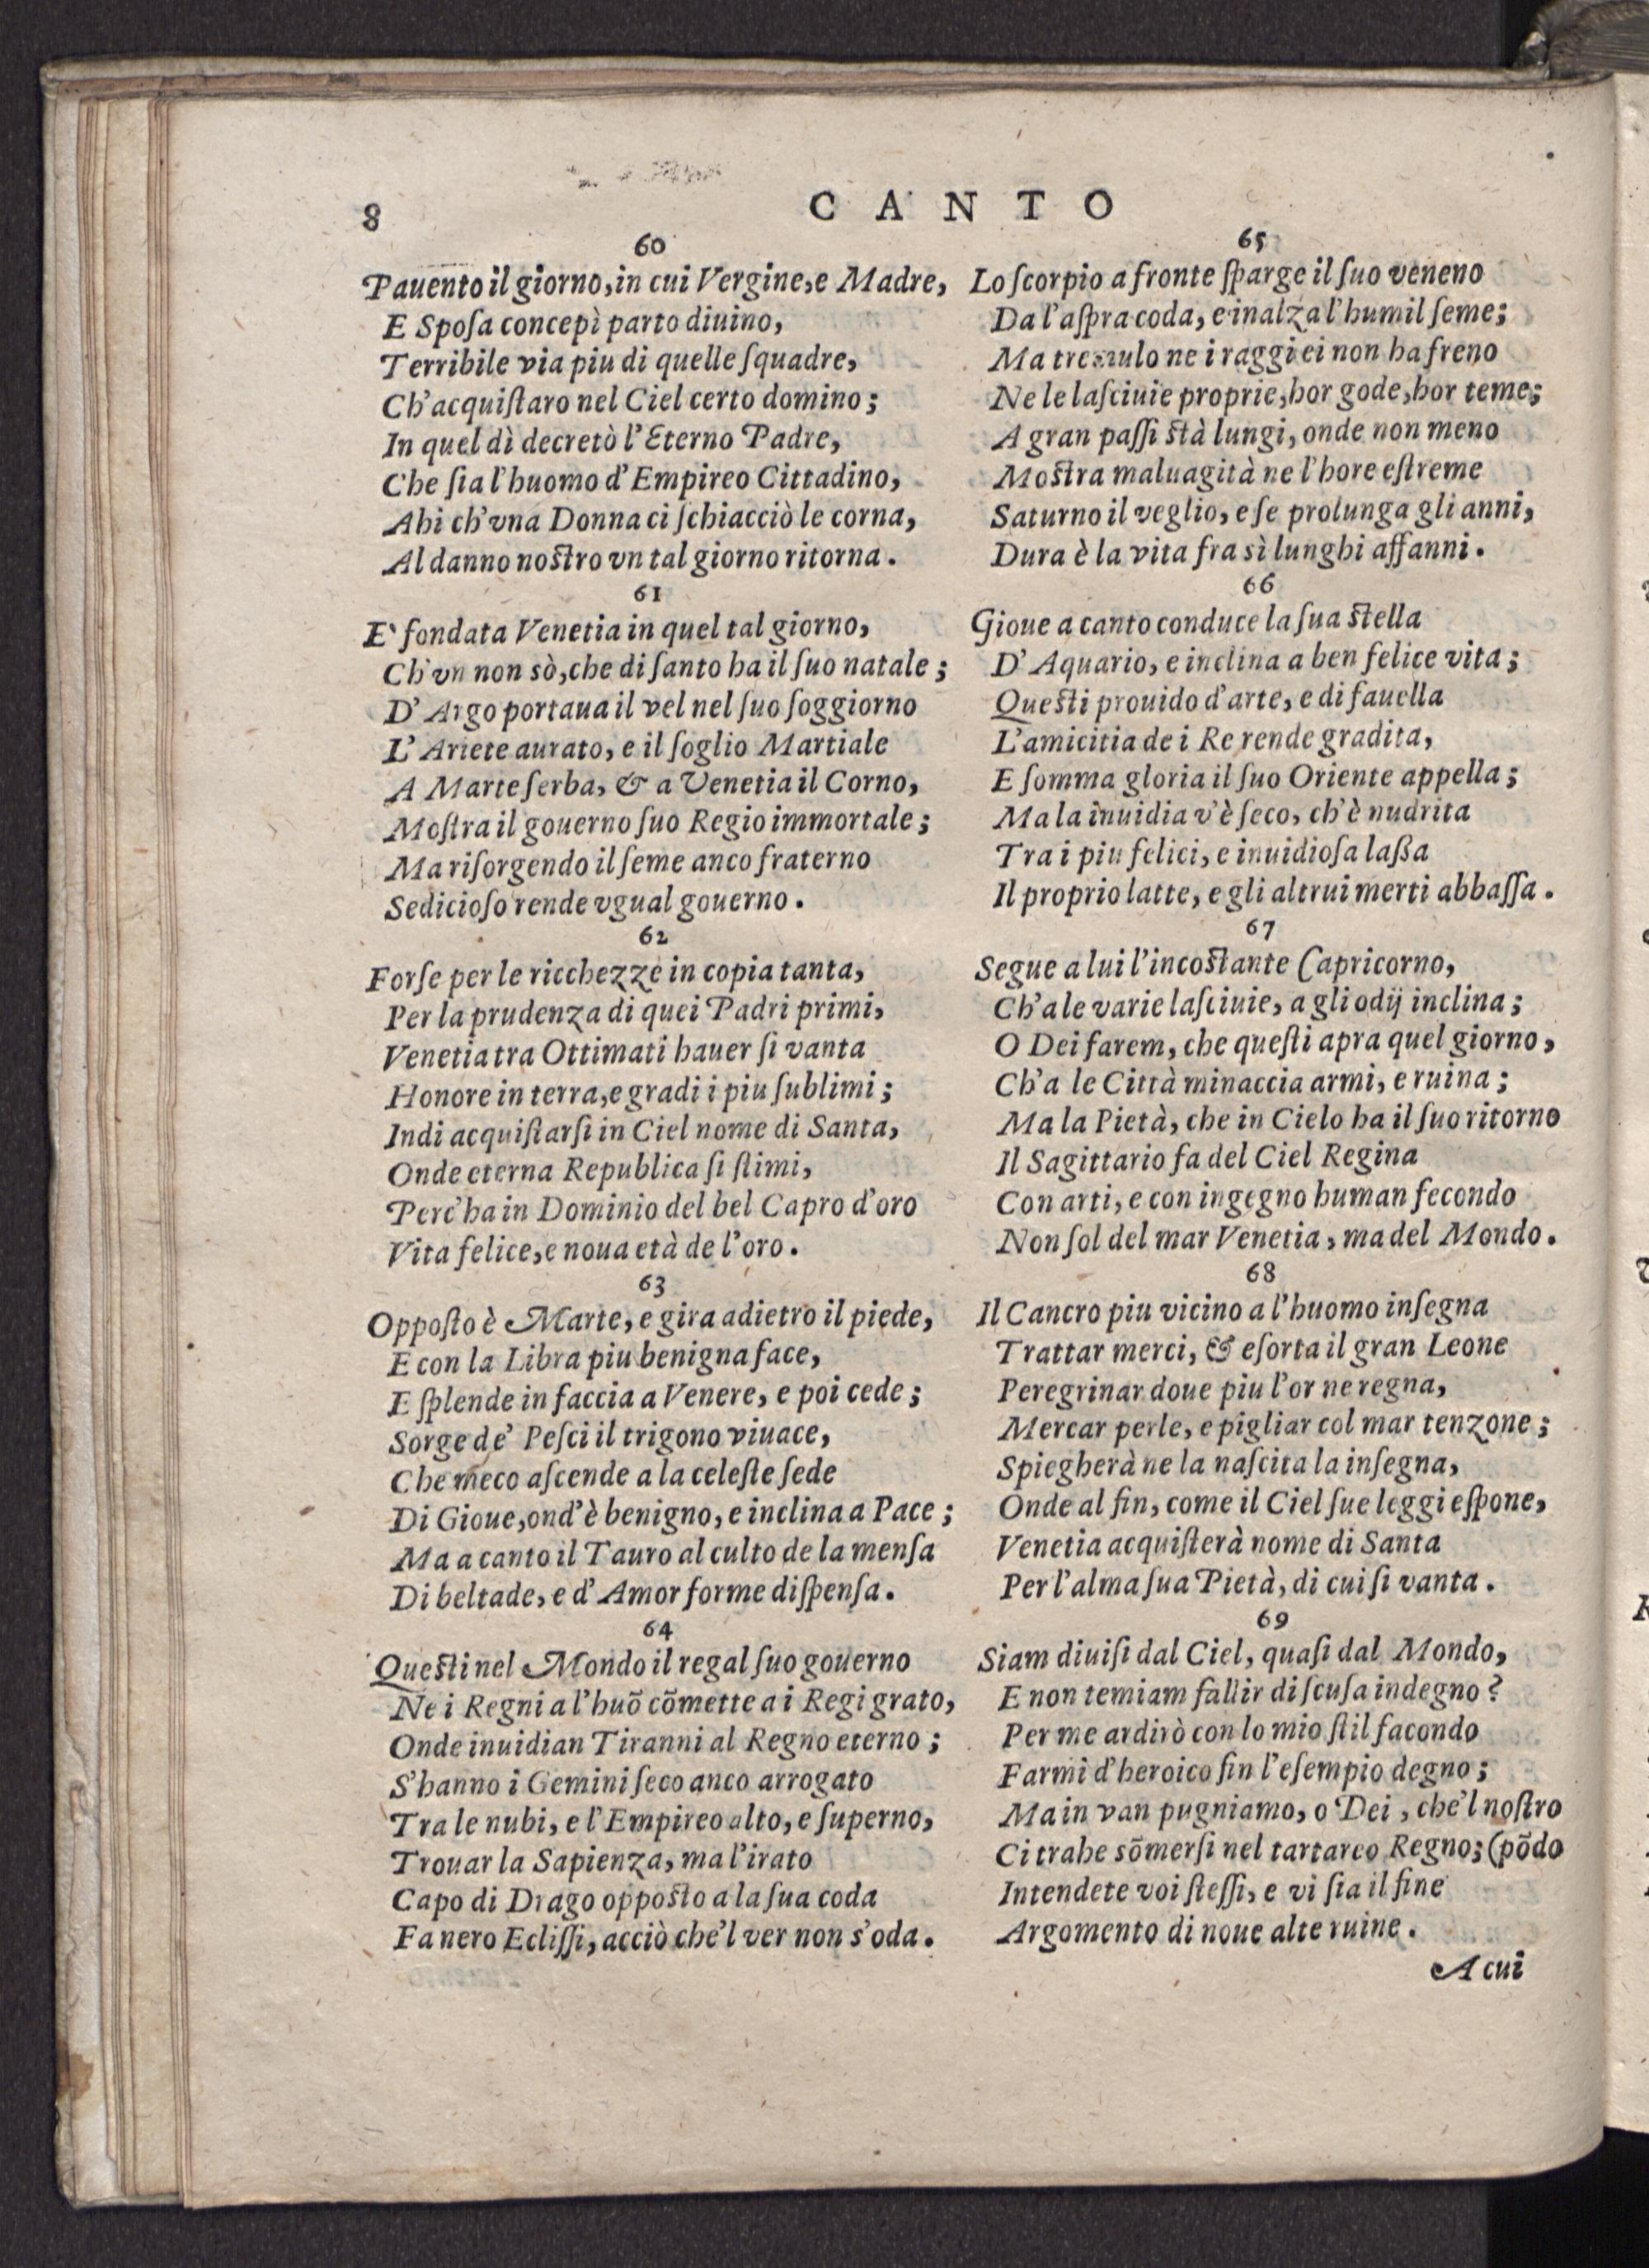 8 CANTO
60
Pauento il giorno, in cui Vergine, e Madre,
E Sposa concepì parto diuino,
Terribile via piu di quelle squadre,
Ch'acquistaro nel Ciel certo domino;
In quel dì decretò l'Eterno Padre,
Che sia l'huomo d'Empireo Cittadino,
Ahi ch'vna Donna ci schiacciò le corna,
Al danno nostro vn tal giorno ritorna.
61
E' fondata Venetia in quel tal giorno,
Ch'vn non sò, che di santo ha il suo natale;
D'Argo portaua il vel nel suo soggiorno
L'Ariete aurato, e il soglio Martiale
A Marte serba, & a Venetia il Corno,
Mostra il gouerno suo Regio immortale;
Ma risorgendo il seme anco fraterno
Sedicioso rende vgual gouerno.
62
Forse per le ricchezze in copia tanta,
Per la prudenza di quei Padri primi,
Venetia tra Ottimati hauer si vanta
Honore in terra, e gradi i piu sublimi;
Indi acquistarsi in Ciel nome di Santa,
Onde eterna Republica si stimi,
Perc'ha in Dominio del bel Capro d'oro
Vita felice, e noua età de l'oro.
63
Opposto è Marte, e gira adietro il piede,
E con la Libra piu benigna face,
E splende in faccia a Venere, e poi cede;
Sorge de' Pesci il trigono viuace,
Che meco ascende a la celeste sede
Di Gioue, ond'è benigno, e inclina a Pace;
Ma a canto il Tauro al culto de la mensa
Di beltade, e d'Amor forme dispensa.
64
Questi nel Mondo il regal suo gouerno
Ne i Regni a l'huõ cõmette a i Regi grato,
Onde inuidian Tiranni al Regno eterno;
S'hanno i Gemini seco anco arrogato
Tra le nubi, e l'Empireo alto, e superno,
Trouar la Sapienza, ma l'irato
Capo di Drago opposto a la sua coda
Fa nero Eclissi, acciò che'l ver non s'oda.
65
Lo scorpio a fronte sparge il suo veneno
Da l'aspra coda, e inalza l'humil seme;
Ma tremulo ne i raggi ei non ha freno
Ne le lasciuie proprie, hor gode, hor teme;
A gran passi stà lungi, onde non meno
Mostra maluagità ne l'hore estreme
Saturno il veglio, e se prolunga gli anni,
Dura è la vita fra sì lunghi affanni.
66
Gioue a canto conduce la sua stella
D'Aquario, e inclina a ben felice vita;
Questi prouido d'arte, e di fauella
L'amicitia de i Re rende gradita,
E somma gloria il suo Oriente appella;
Ma la inuidia v'è seco, ch'è nudrita
Tra i piu felici, e inuidiosa lassa
Il proprio latte, e gli altrui merti abbassa.
67
Segue a lui l'incostante Capricorno,
Ch'a le varie lasciuie, a gli odij inclina;
O Dei farem, che questi apra quel giorno,
Ch'a le Città minaccia armi, e ruina;
Ma la Pietà, che in Cielo ha il suo ritorno
Il Sagittario fa del Ciel Regina
Con arti, e con ingegno human fecondo
Non sol del mar Venetia, ma del Mondo.
68
Il Cancro piu vicino a l'huomo insegna
Trattar merci, & esorta il gran Leone
Peregrinar doue piu l'or ne regna,
Mercar perle, e pigliar col mar tenzone;
Spiegherà ne la nascita la insegna,
Onde al fin, come il Ciel sue leggi espone,
Venetia acquisterà nome di Santa
Per l'alma sua Pietà, di cui si vanta.
69
Siam diuisi dal Ciel, quasi dal Mondo,
E non temiam fallir di scusa indegno?
Per me ardirò con lo mio stil facondo
Farmi d'heroico fin l'esempio degno;
Ma in van pugniamo, o Dei, che'l nostro
Ci trahe sõmersi nel tartareo Regno; (põdo
Intendete voi stessi, e vi sia il fine
Argomento di noue alte ruine.
A cui